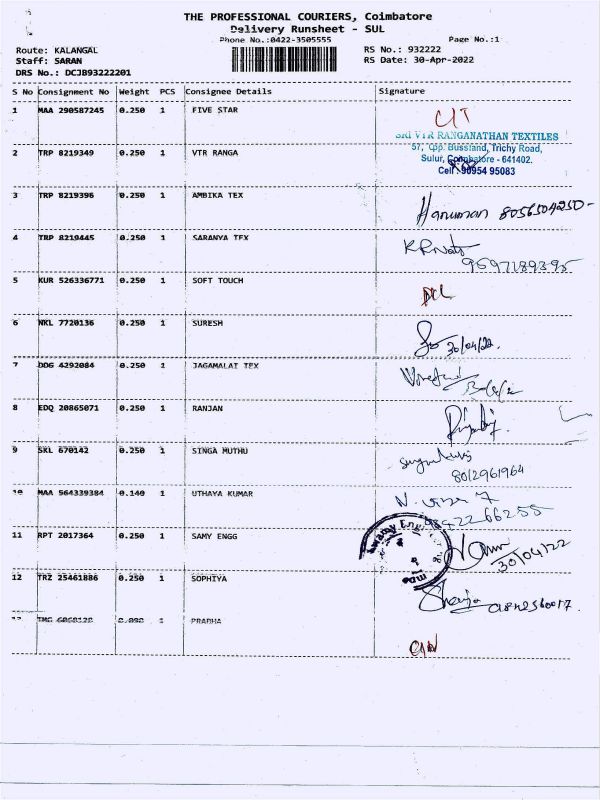 THE PROFESSIONAL COURIERS, Coimbatore
Delivery Runsheet - SUL
Phone No.:0422-3505555 Page No.:1
Route: KALANGAL RS No.: 932222
Staff: SARAN RS Date: 30-Apr-2022
DRS No.: DCJB93222201
S No Consignment No Weight PCS Consignee Details Signature
1 MAA 290587245 0.250 1 FIVE STAR
SRI VTR RANGANATHAN TEXTILES
57, Opp. Busstand, Trichy Road,
2 TRP 8219349 0.250 1 VTR RANGA
Sulur, Coimbatore - 641402.
Cell : 90954 95083
3 TRP 8219396 0.250 1 AMBIKA TEX
Hanuman 8056504250-
4 TRP 8219445 0.250 1 SARANYA TEX
9597189395
5 KUR 526336771 0.250 1 SOFT TOUCH
6 NKL 7720136 0.250 1 SURESH
30/04/22.
7 DDG 4292084 0.250 1 JAGAMALAI TEX
8 EDQ 20865071 0.250 1 RANJAN
9 SKL 670142 0.250 1 SINGA MUTHU
8012961964
10 MAA 564339384 0.140 1 UTHAYA KUMAR
11 RPT 2017364 0.250 1 SAMY ENGG
30/04/22
12 TRZ 25461886 0.250 1 SOPHIYA
1 PRABHA